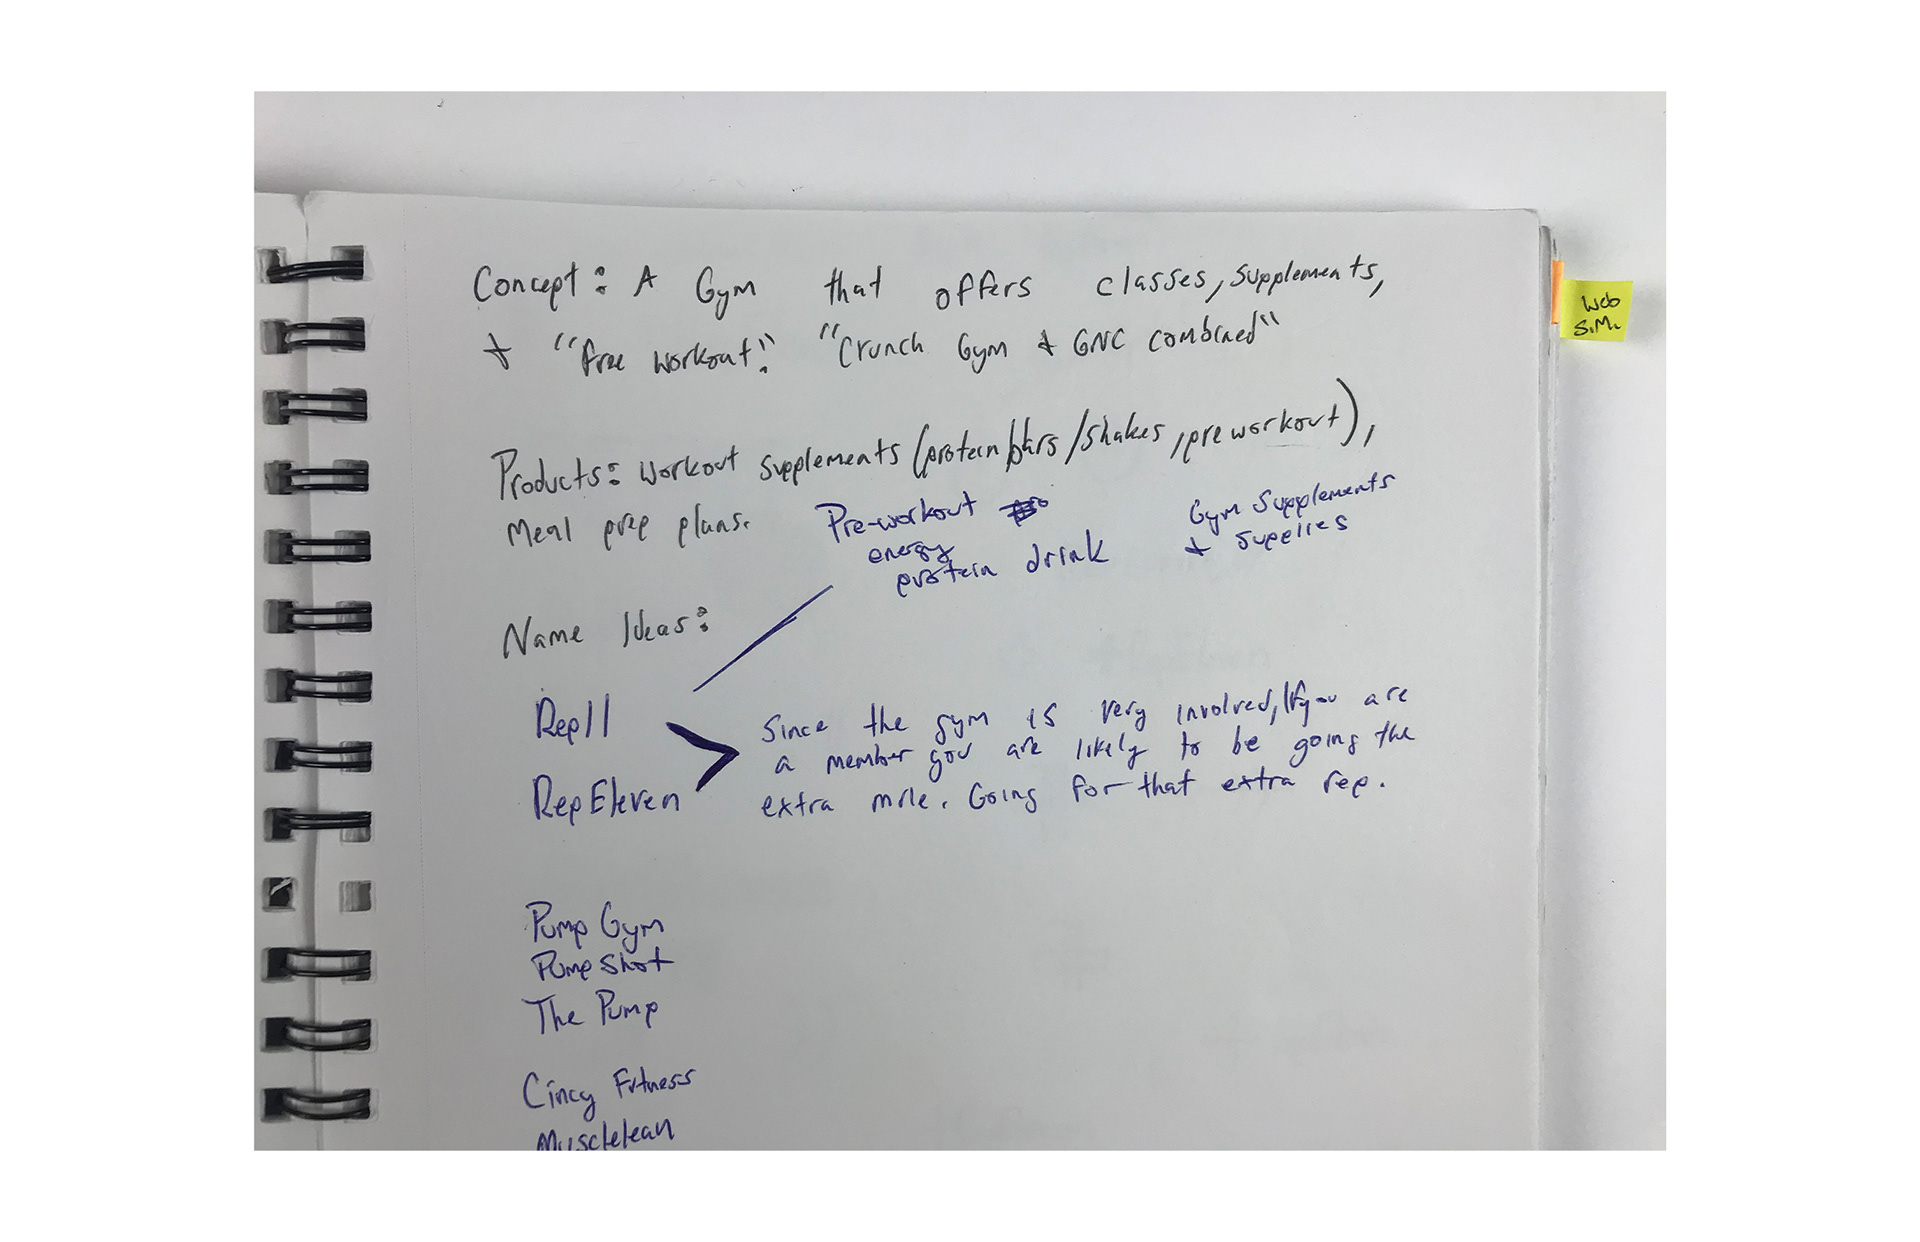 Concept: A Gym that offers classes, supplements,
+ "free workout". "Crunch Gym + GNC combined"
Web
S.M.
Products: Workout supplements (protein bars/shakes, pre workout),
Meal prep plans.
Pre-workout
energy
protein drink
Gym Supplements
+ supplies
Name Ideas:
Rep11
RepEleven
Since the gym is very involved, If you are
a member you are likely to be going the
extra mile. Going for that extra rep.
Pump Gym
Pump Shot
The Pump
Cincy Fitness
Musclelean